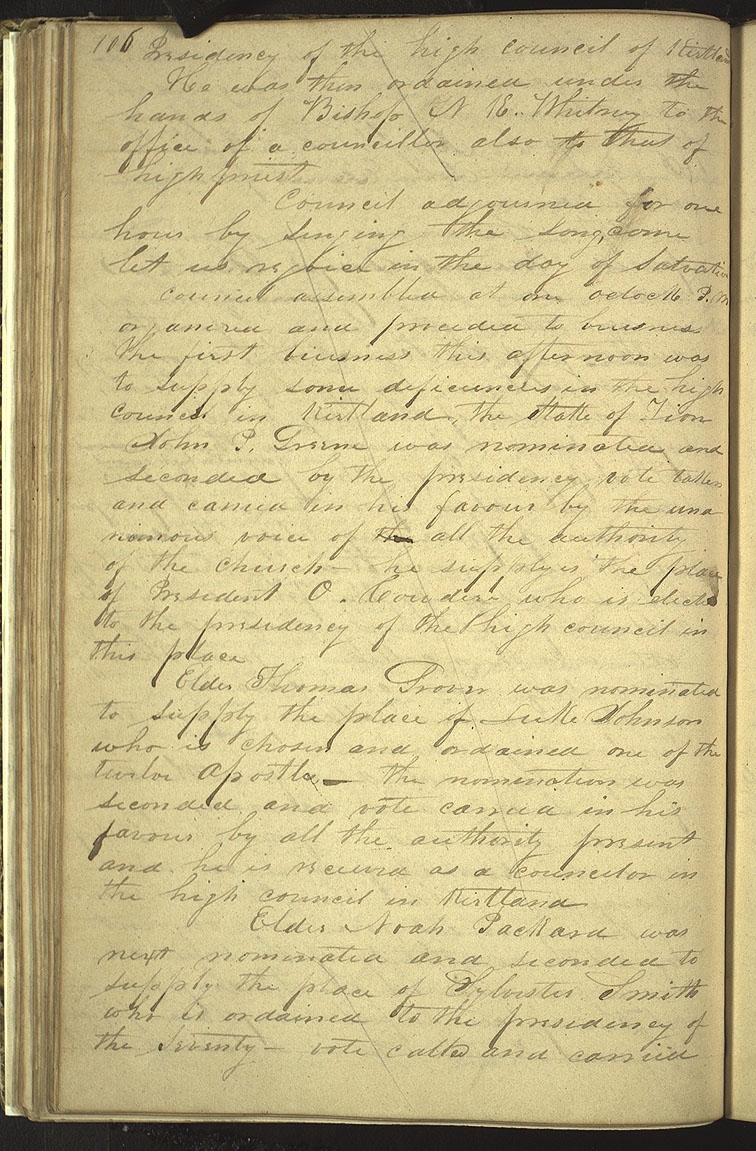 106 Presidency of the high council of Kirtland
He was then ordained under the
hands of Bishop N K. Whitney to the
office of a councillor also to that of
high priest
Council adjourned for one
hour by singing the song, come
let us rejoice in the day of salvation
council assembled at one oclock P. M
organized and proceded to buisness
The first buisness this afternoon was
to supply some deficiencies in the high
council in Kirtland, the stake of Zion
John P. Greene was nominated and
seconded by the presidency vote taken
and carried in his favour by the una
nimous voice of the all the authority
of the church — he supplyes the place
of President O. Cowdery who is elected
to the presidency of the high council in
this place
Elder Thomas Grover was nominated
to supply the place of Luke Johnson
who is chosen and ordained one of the
twelve Apostles — the nomination was
seconded and vote carried in his
favour by all the authority present
and he is received as a councilor in
the high council in Kirtland
Elder Noah Packard was
next nominated and seconded to
supply the place of Sylvester Smith
who is ordained to the presidency of
the seventy — vote called and carried